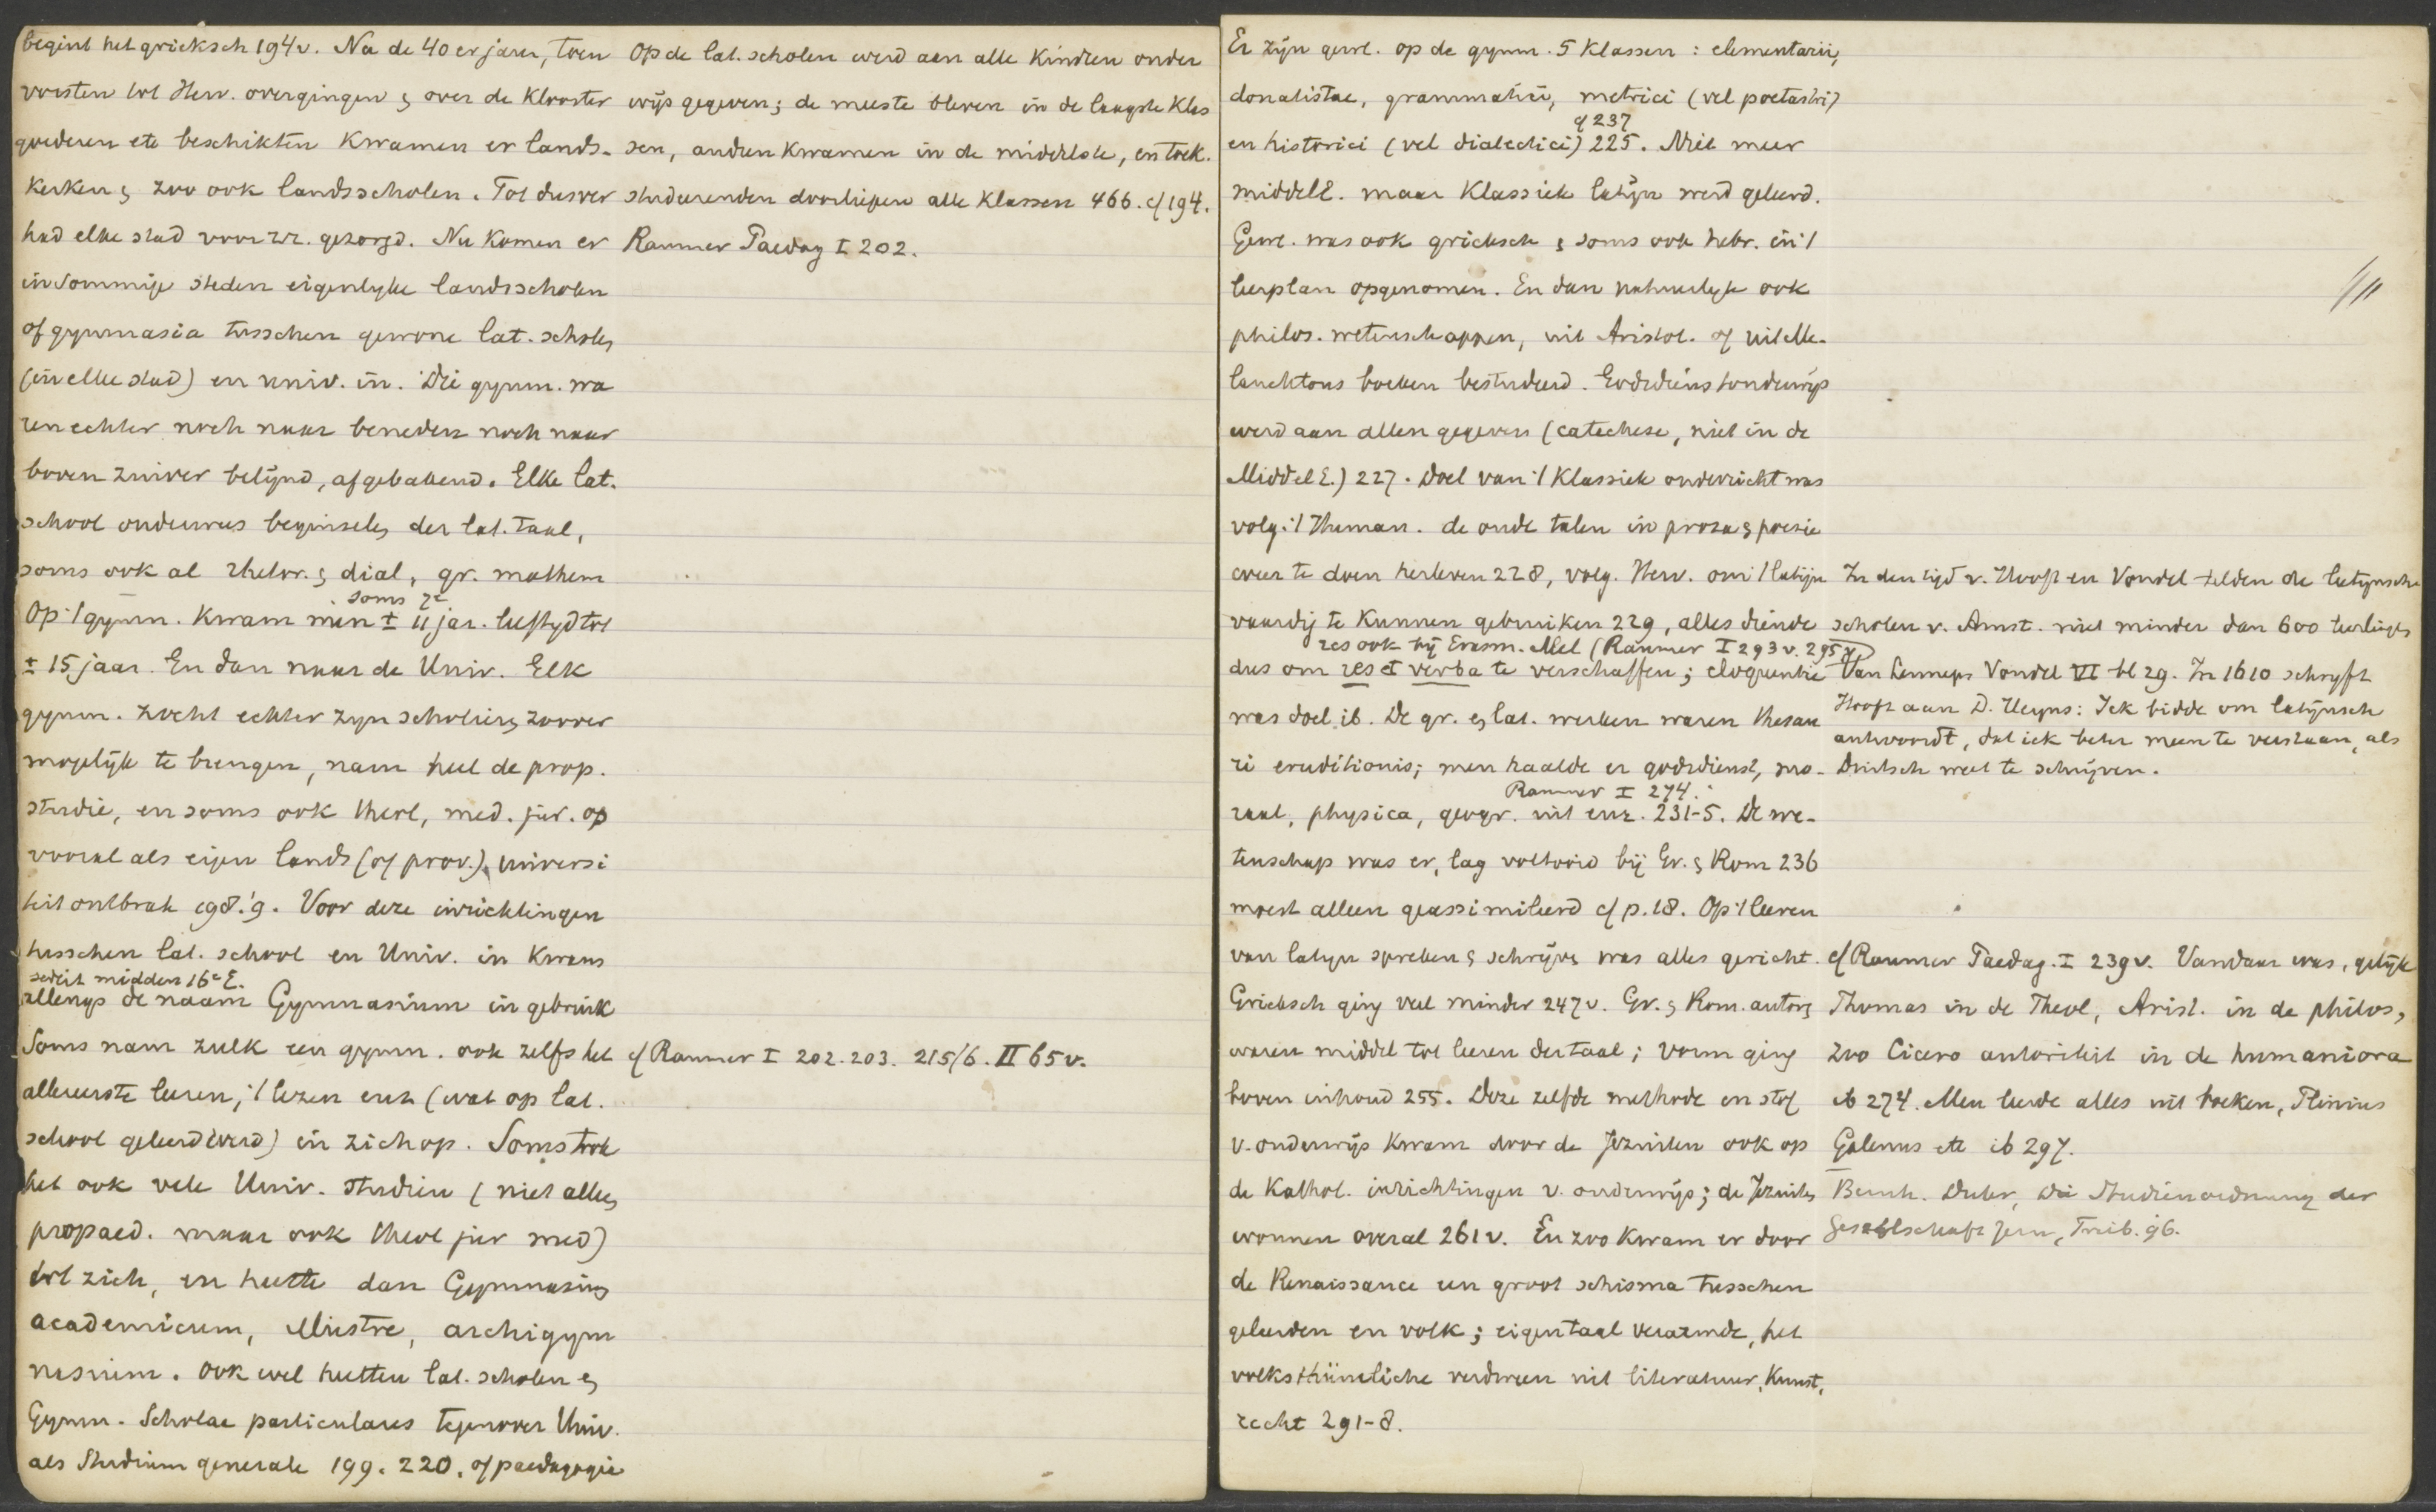 begint het grieksch 194v. Na de 40er jaren, toen
vorsten tot Herv. overgingen & over de klooster
goederen etc beschikten kwamen er lands-
kerken & zoo ook landsscholen. Tot dusver
had elke stad voor zr. gezorgd. Nu komen er
in sommige steden eigenlyke landsscholen
of gymnasia tusschen gewone lat. scholen
(in elke stad) en univ. in. Die gymn. wa
ren echter noch naar beneden noch naar
boven zuiver belijnd, afgebakend. Elke lat.
school onderwees beginselen der lat. taal,
soms ook al rhetor. & dial, gr. mathem
soms 7e
Op 't gymn. kwam men ± 11 jar. leeftyd tot
± 15 jaar. En dan naar de Univ. Elk
gymn. zocht echter zyn scholieren zoover
mogelijk te brengen, nam heel de prop.
studie, en soms ook theol, med. jur. op
vooral als eigen lands (of prov.) universi
teit ontbrak 198.'9. Voor deze inrichtingen
tusschen lat. school en Univ. in kwam
sedert midden 16e E.
allengs de naam Gymnasium in gebruik
Soms nam zulk een gymn. ook zelfs het
allereerste leeren, 't lezen enz (wat op lat.
school geleerd werd) in zich op. Soms trok
het ook vele Univ. studien (niet alleen
propaed. maar ook theol jur med)
tot zich, en heette dan Gymnasium
academicum, illustre, archigym
nasium. Ook wel heetten lat. scholen en
Gymn. Scholae particulares tegenover Univ.
als Studium generale 199. 220. of paedagogia
Op de lat. scholen werd aan alle kinderen onder
wijs gegeven; de meeste bleven in de laagste klas
sen, anderen kwamen in de middelste, en toek.
studeerenden doorliepen alle klassen 466. cf 194.
Raumer Paedag I 202.
cf Raumer I 202. 203. 215/6. II 65v.
Er zijn gewl. op de gymn. 5 klassen: elementarii,
donatistae, grammatici, metrici (vel poetastri)
cf 237
en historici (vel dialectici) 225. Niet meer
middelE. maar klassiek latijn werd geleerd.
Gewl. was ook grieksch & soms ook hebr. in 't
leerplan opgenomen. En dan natuurlyk ook
philos. wetenschappen, uit Aristot. of uit Me-
lanchtons boeken bestudeerd. Godsdienstonderwijs
werd aan allen gegeven (catechese, niet in de
MiddelE.) 227. Doel van 't klassiek onderricht was
volg. 't Human. de oude talen in proza & poezie
weer te doen herleven 228, volg. Herv. om 't latijn
vaardig te kunnen gebruiken 229, alles diende
res ook bij Erasm. Mel (Raumer I 293v. 295v)
dus om res et verba te verschaffen; eloquentie
was doel ib. De gr. en lat. werken waren thesau
ri eruditionis; men haalde er godsdienst, mo-
Raumer I 274.
raal, physica, geogr. uit enz. 231-5. De we-
tenschap was er, lag voltooid bij Gr. & Rom 236
moest alleen geassimileerd cf p. 18. Op 't leeren
van latyn spreken & schrijven was alles gericht.
Grieksch ging veel minder 247v. Gr. & Rom. autors
waren middel tot leeren der taal; vorm ging
boven inhoud 255. Deze zelfde methode en stof
v. onderwijs kwam door de Jezuiten ook op
de Kathol. inrichtingen v. onderwijs; de Jezuiten
wonnen overal 261v. En zoo kwam er door
de Renaissance een groot schisma tusschen
geleerden en volk; eigen taal verarmde, het
volksthümliche verdween uit literatuur, kunst,
recht 291-8.
In den tijd v. Hooft en Vondel telden de latynsche
scholen v. Amst. niet minder dan 600 leerlingen
Van Lenneps Vondel VI bl 29. In 1610 schryft
Hooft aan D. Heyns: Ick bidde om latijnsch
antwoordt, dat ick beter meen te verstaan, als
Duitsch weet te schrijven.
cf Raumer Paedag. I 239v. Vandaar was, gelijk
Thomas in de Theol, Arist. in de philos,
zoo Cicero autoriteit in de humaniora
ib 274. Men leerde alles uit boeken, Plinius
Galenus etc ib 297.
Bernh. Duhr, Die Studienordnung der
Gesellschaft Jesu, Freib. 96.